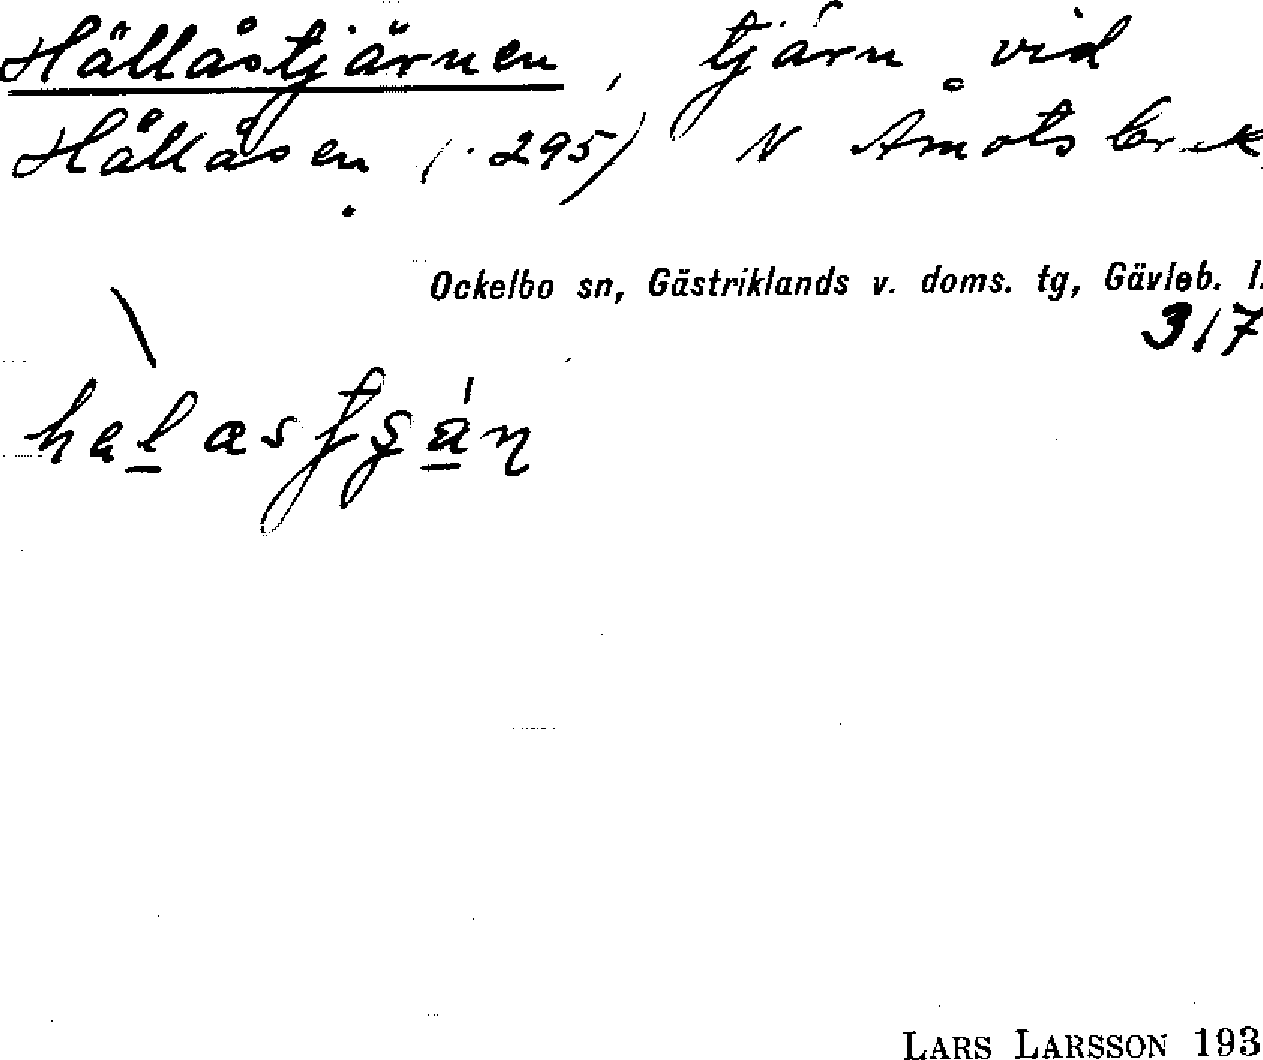 Hällåstjärnen, tjärn vid
Hällåsen (. 295) N Åmots bruk
Ockelbo sn, Gästriklands v. doms. tg, Gävleb. l.
317
LARS LARSSON 193